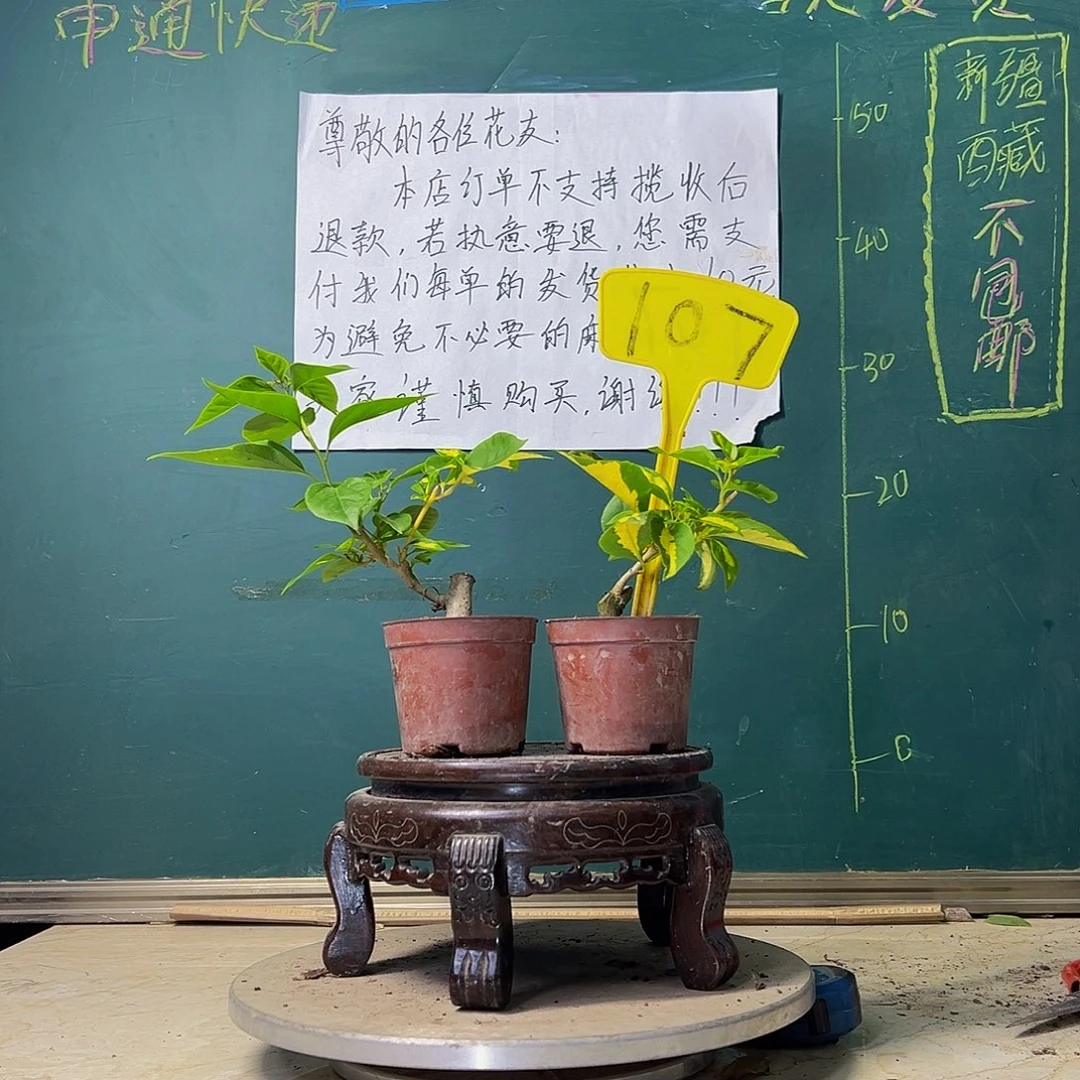 申通快递
尊敬的各位花友:
本店订单不支持揽收后
退款,若执意要退,您需支
付我们每单的发货 10元
为避免不必要的麻
家谨慎购买,谢谢!!!
107
50
40
30
20
10
0
新疆
西藏
不包邮